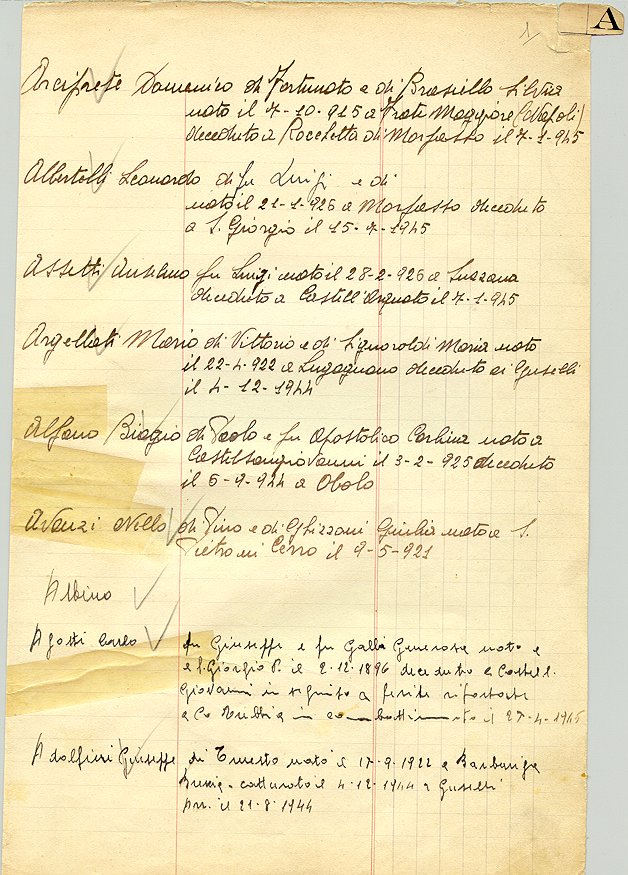 1 A
Arciprete Domenico di Fortunato e di Brasiello Silvia
nato il 7-10-915 a Fratt Maggiore (Napoli)
deceduto a Rocchetta di Morfasso il 7-1-945
Albertelli Leonardo di fu Luigi e di
nato il 21-1-926 a Morfasso deceduto
a S. Giorgio il 15-7-1945
Assetti Anselmo fu Luigi nato il 28-2-926 a Suzzara
deceduto a Castell'Arquato il 7-1-945
Argellati Mario di Vittorio e di Signaroldi Maria nato
il 22-4-922 a Lugagnano deceduto ai Guselli
il 4-12-1944
Alfano Biagio di Paolo e fu Apostolico Carlina nato a
Castelsangiovanni il 3-2-925 deceduto
il 6-9-944 a Obolo
Avanzi Nello di Pino e di Ghizzoni Giulia nato a S.
Pietro in Cerro il 9-5-921
Albino
Agosti Carlo fu Giuseppe e fu Galli Generosa nato e
a S. Giorgio P. il 2-12-1896 deceduto a Castell.
Giovanni in seguito a ferite riportate
a Ca Trebbia in combattimento il 27-4-1945
Adolfini Giuseppe di Ernesto nato il 17-9-1922 a Barbariga
Brescia - catturato il 4-12-1944 a Guselli
Arr. il 21-8-1944